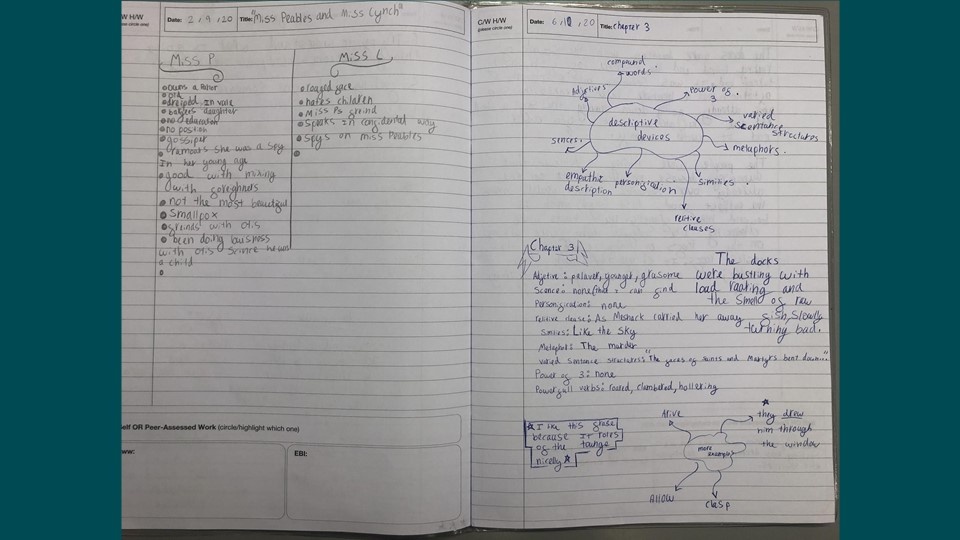 w H/W
e circle one)
Date: 2/9/20
Title: "Miss Peables and Miss Lynch"
Miss P
owns a
old
dressed In
bakers daughter
no education
no position
gossiper
rumours she was a spy
In her young age
good with mixing
with foreghners
not the most beautiful
Smallpox
freinds with otis
been doing buisness
with otis scince he was
a child
Miss L
rouged face
hates children
Miss Ps freind
Speaks In confidental way
Spys on miss Peables
elf OR Peer-Assessed Work (circle/highlight which one)
ww:
EBI:
C/W H/W
(please circle one)
Date: 20
Title: chapter 3
descriptive
devices
compound
words.
Adjctives
Power of
3
varied
structures
metaphors.
similies.
relitive
clauses
personification
empathic
description
sences.
Chapter 3
Adjctive: younger, grusome
Scence: none (that I can find
Personification: none
relitive clause: As Meshack carried her away
Similies: Like the Sky
Metaphor: The murder
varied Sentance structures: "The faces of saints and Martyrs bent down..."
Power of 3: none
Powerfull verbs: roared, clambered, hollering
The docks
were bustling with
load and
the smell of raw
fish, slowly
turning bad.
I like this frase
because It roles
of the tounge
nicely
more
examples
Alive
they drew
him through
the window
Allow
Clasp